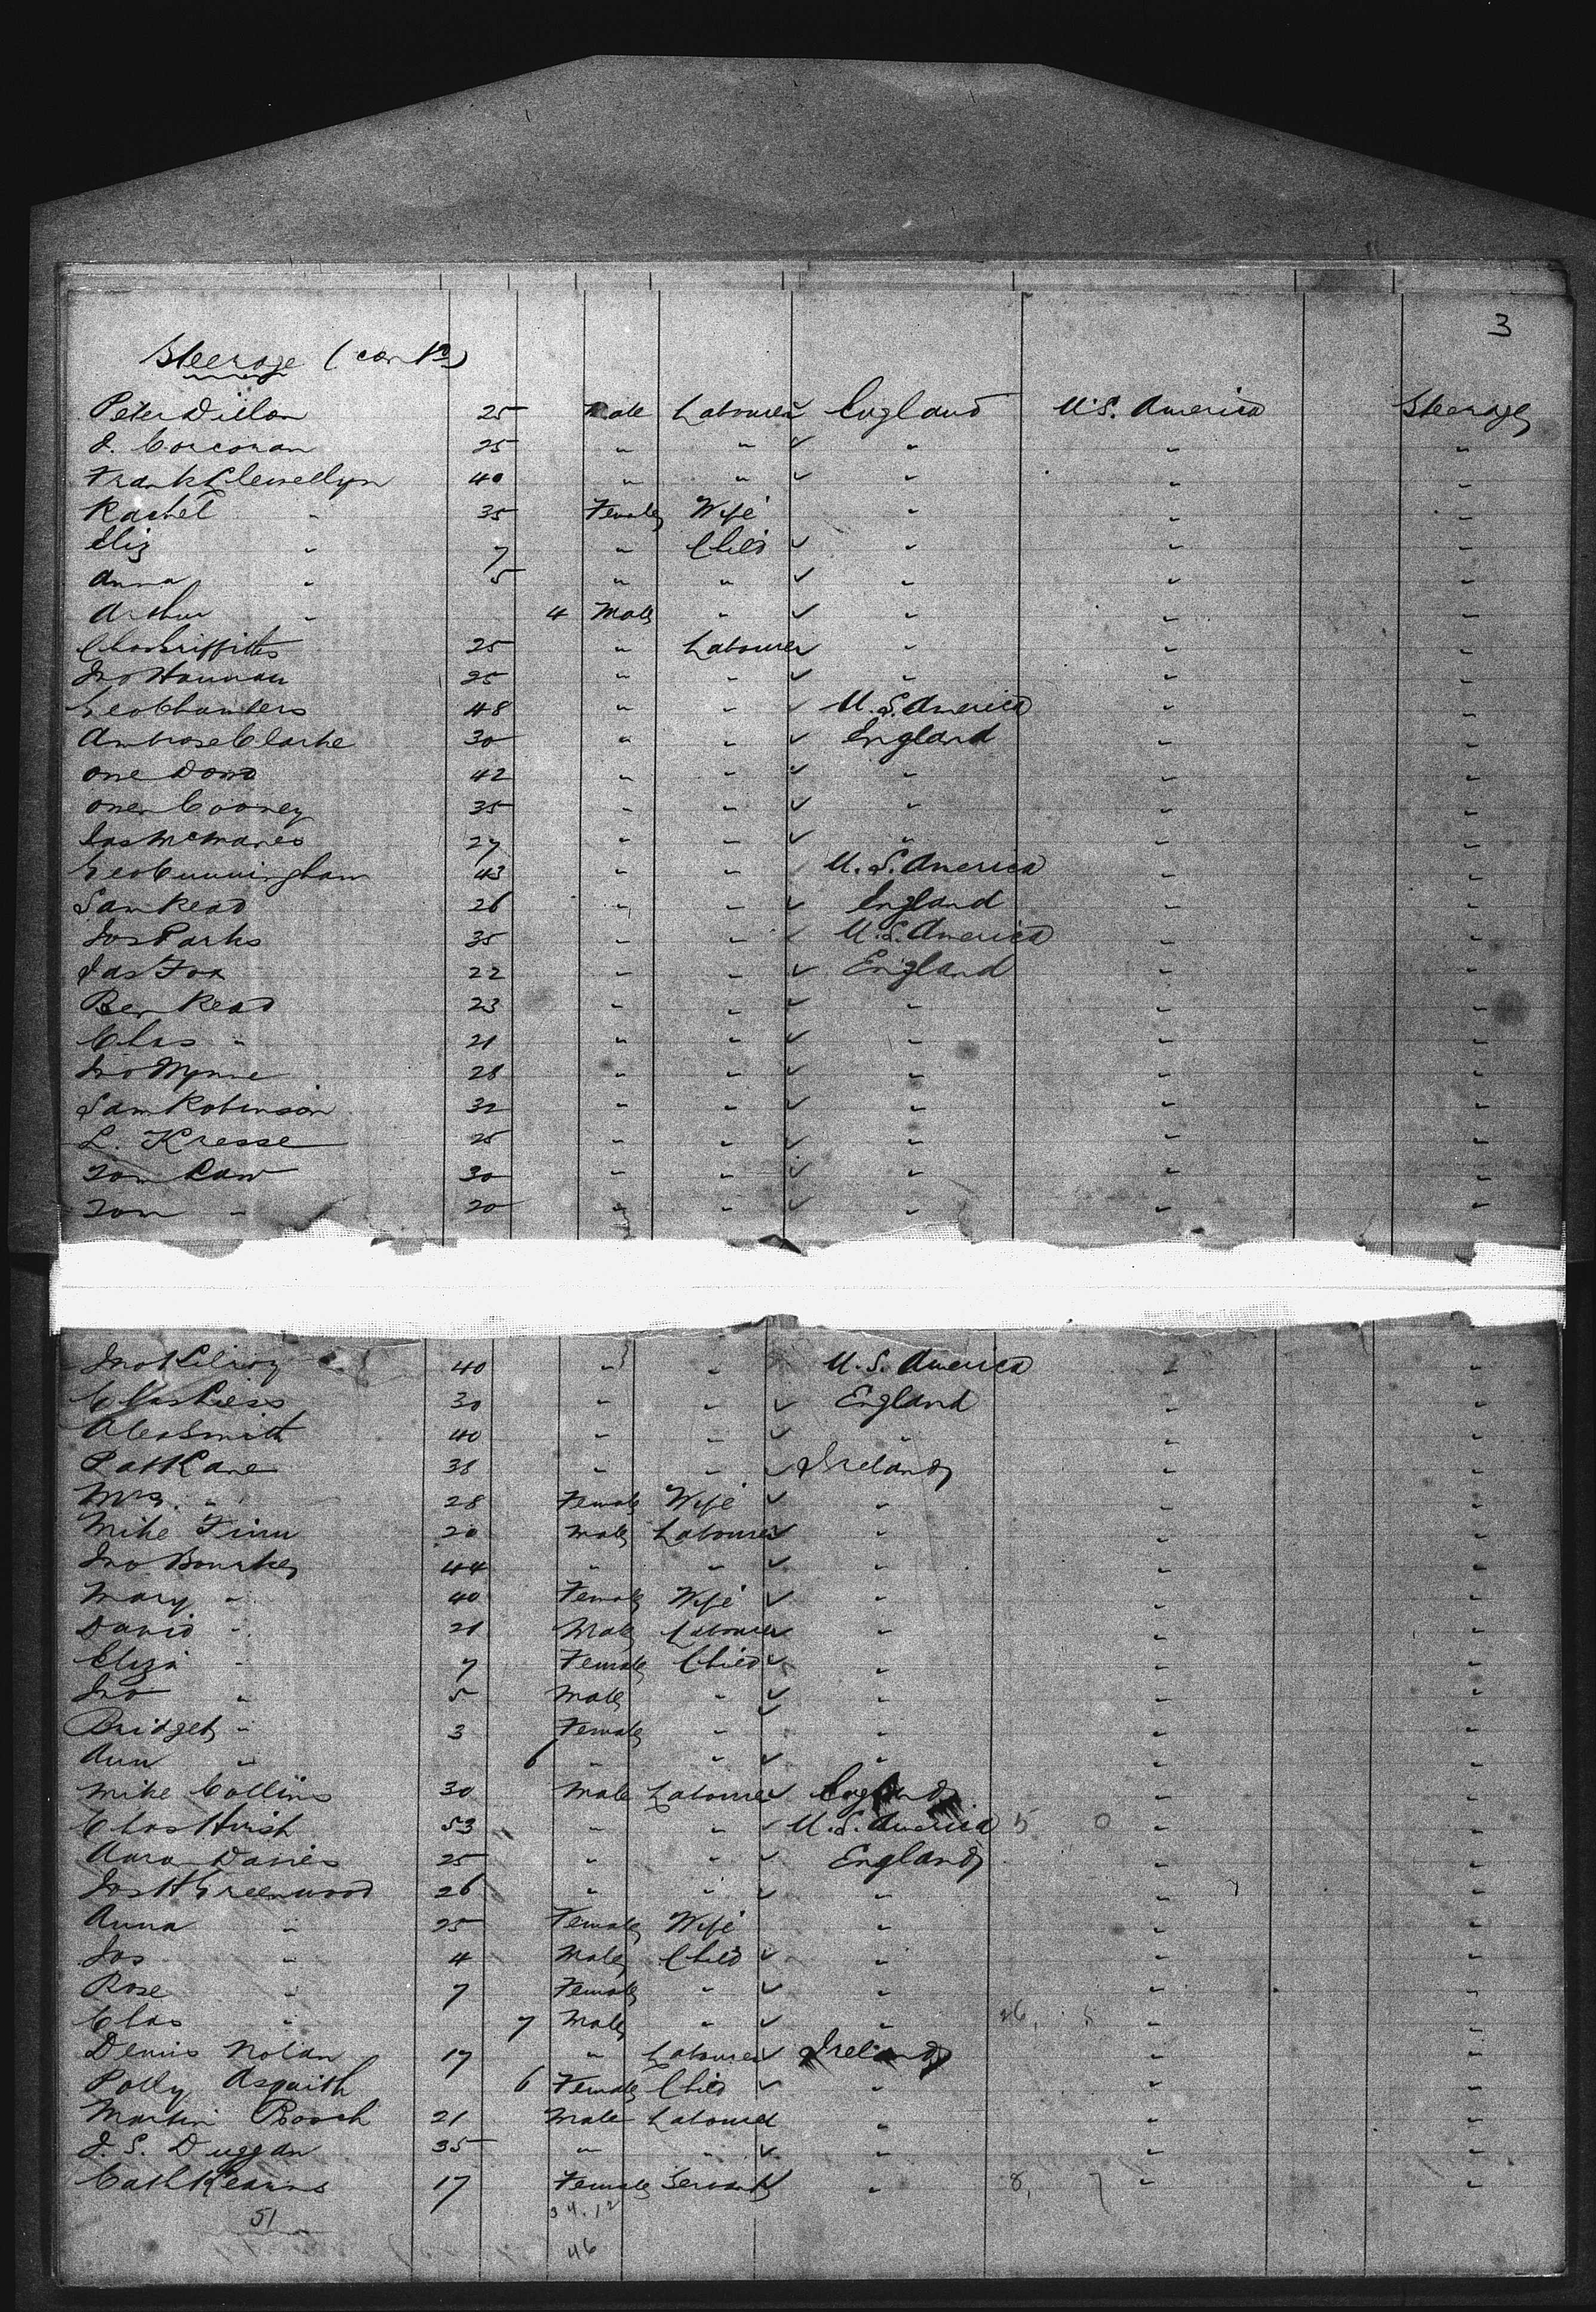 3
Steerage (cont^d)
Peter Dillon 25 Male Labourer England U.S. America Steerage
J. Corcoran 25 " " ✓ " " "
Frank Llewellyn 40 " " ✓ " " "
Rachel " 35 Female Wife " " "
Eliz " 7 " Child ✓ " " "
Anna " 5 " " ✓ " " "
Arthur " 4 Male " ✓ " " "
Chas Griffiths 25 " Labourer ✓ " " "
Jno Hannan 25 " " ✓ " " "
Geo Chambers 48 " " ✓ U.S. America " "
Ambrose Clarke 30 " " ✓ England " "
42 " " ✓ " " "
Cooney 35 " " ✓ " " "
Jas 27 " " ✓ " " "
Geo Cunningham 43 " " ✓ U.S. America " "
Sam Read 26 " " ✓ England " "
Jos Parks 35 " " ✓ U.S. America " "
Jas Fox 22 " " ✓ England " "
Ben Read 23 " " ✓ " " "
Chas " 21 " " ✓ " " "
Jno Wynne 28 " " ✓ " " "
Sam Robinson 32 " " ✓ " " "
L. Kresse 25 " " ✓ " " "
Tom Law 30 " " ✓ " " "
Tom " 20 " " ✓ " " "
Jno Kilroy 40 " " U.S. America " "
Chas 30 " " ✓ England " "
Alex Smith 40 " " ✓ " " "
Pat Kane 38 " " ✓ Ireland " "
Mrs. " 28 Female Wife ✓ " " "
Mike Finn 20 Male Labourer ✓ " " "
Jno Bourke 44 " " ✓ " " "
Mary " 40 Female Wife ✓ " " "
David " 21 Male Labourer " " "
Eliza " 7 Female Child ✓ " " "
Jno " 5 Male " ✓ " " "
Bridget " 3 Female " ✓ " " "
Ann " 6 " " ✓ " " "
Mike Collins 30 Male Labourer ✓ England " "
Chas Hirsh 53 " " ✓ U.S. America 5 0 " "
Davies 25 " " ✓ England " "
Jos H Greenwood 26 " " ✓ " " "
Anna " 25 Female Wife " " "
Jos " 4 Male Child ✓ " " "
Rose " 7 Female " ✓ " " "
Chas " 7 Male " ✓ " 26, " "
Denis Nolan 17 " Labourer ✓ Ireland " "
Polly Asquith 6 Female Child ✓ " " "
Martin Roach 21 Male Labourer " " "
J. S. Duggan 35 " " ✓ " " "
Cath Kearns 17 Female Servant ✓ " 8, 7 " "
51 34.12
46